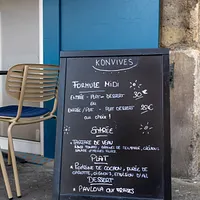 KONVIVES
FORMULE MIDI
ENTRÉE - PLAT - DESSERT 30€
OU
ENTRÉE/PLAT - PLAT DESSERT 25€
au choix!
ENTRÉE
TARTARE DE VEAU
PLAT
POITRINE DE COCHON, PURÉE DE
CAROTTE,
DESSERT
PAVLOVA AUX FRAISES